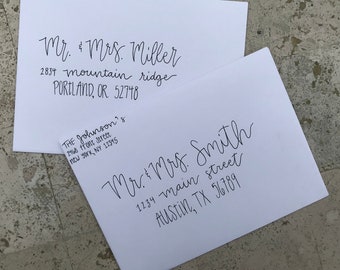 Mr. & Mrs. Miller
2834 mountain ridge
PORTLAND, OR 52748
THE Johnson's
STREET
NEW YORK, NY 12345
Mr. & Mrs. Smith
1234 main street
AUSTIN, TX 56789